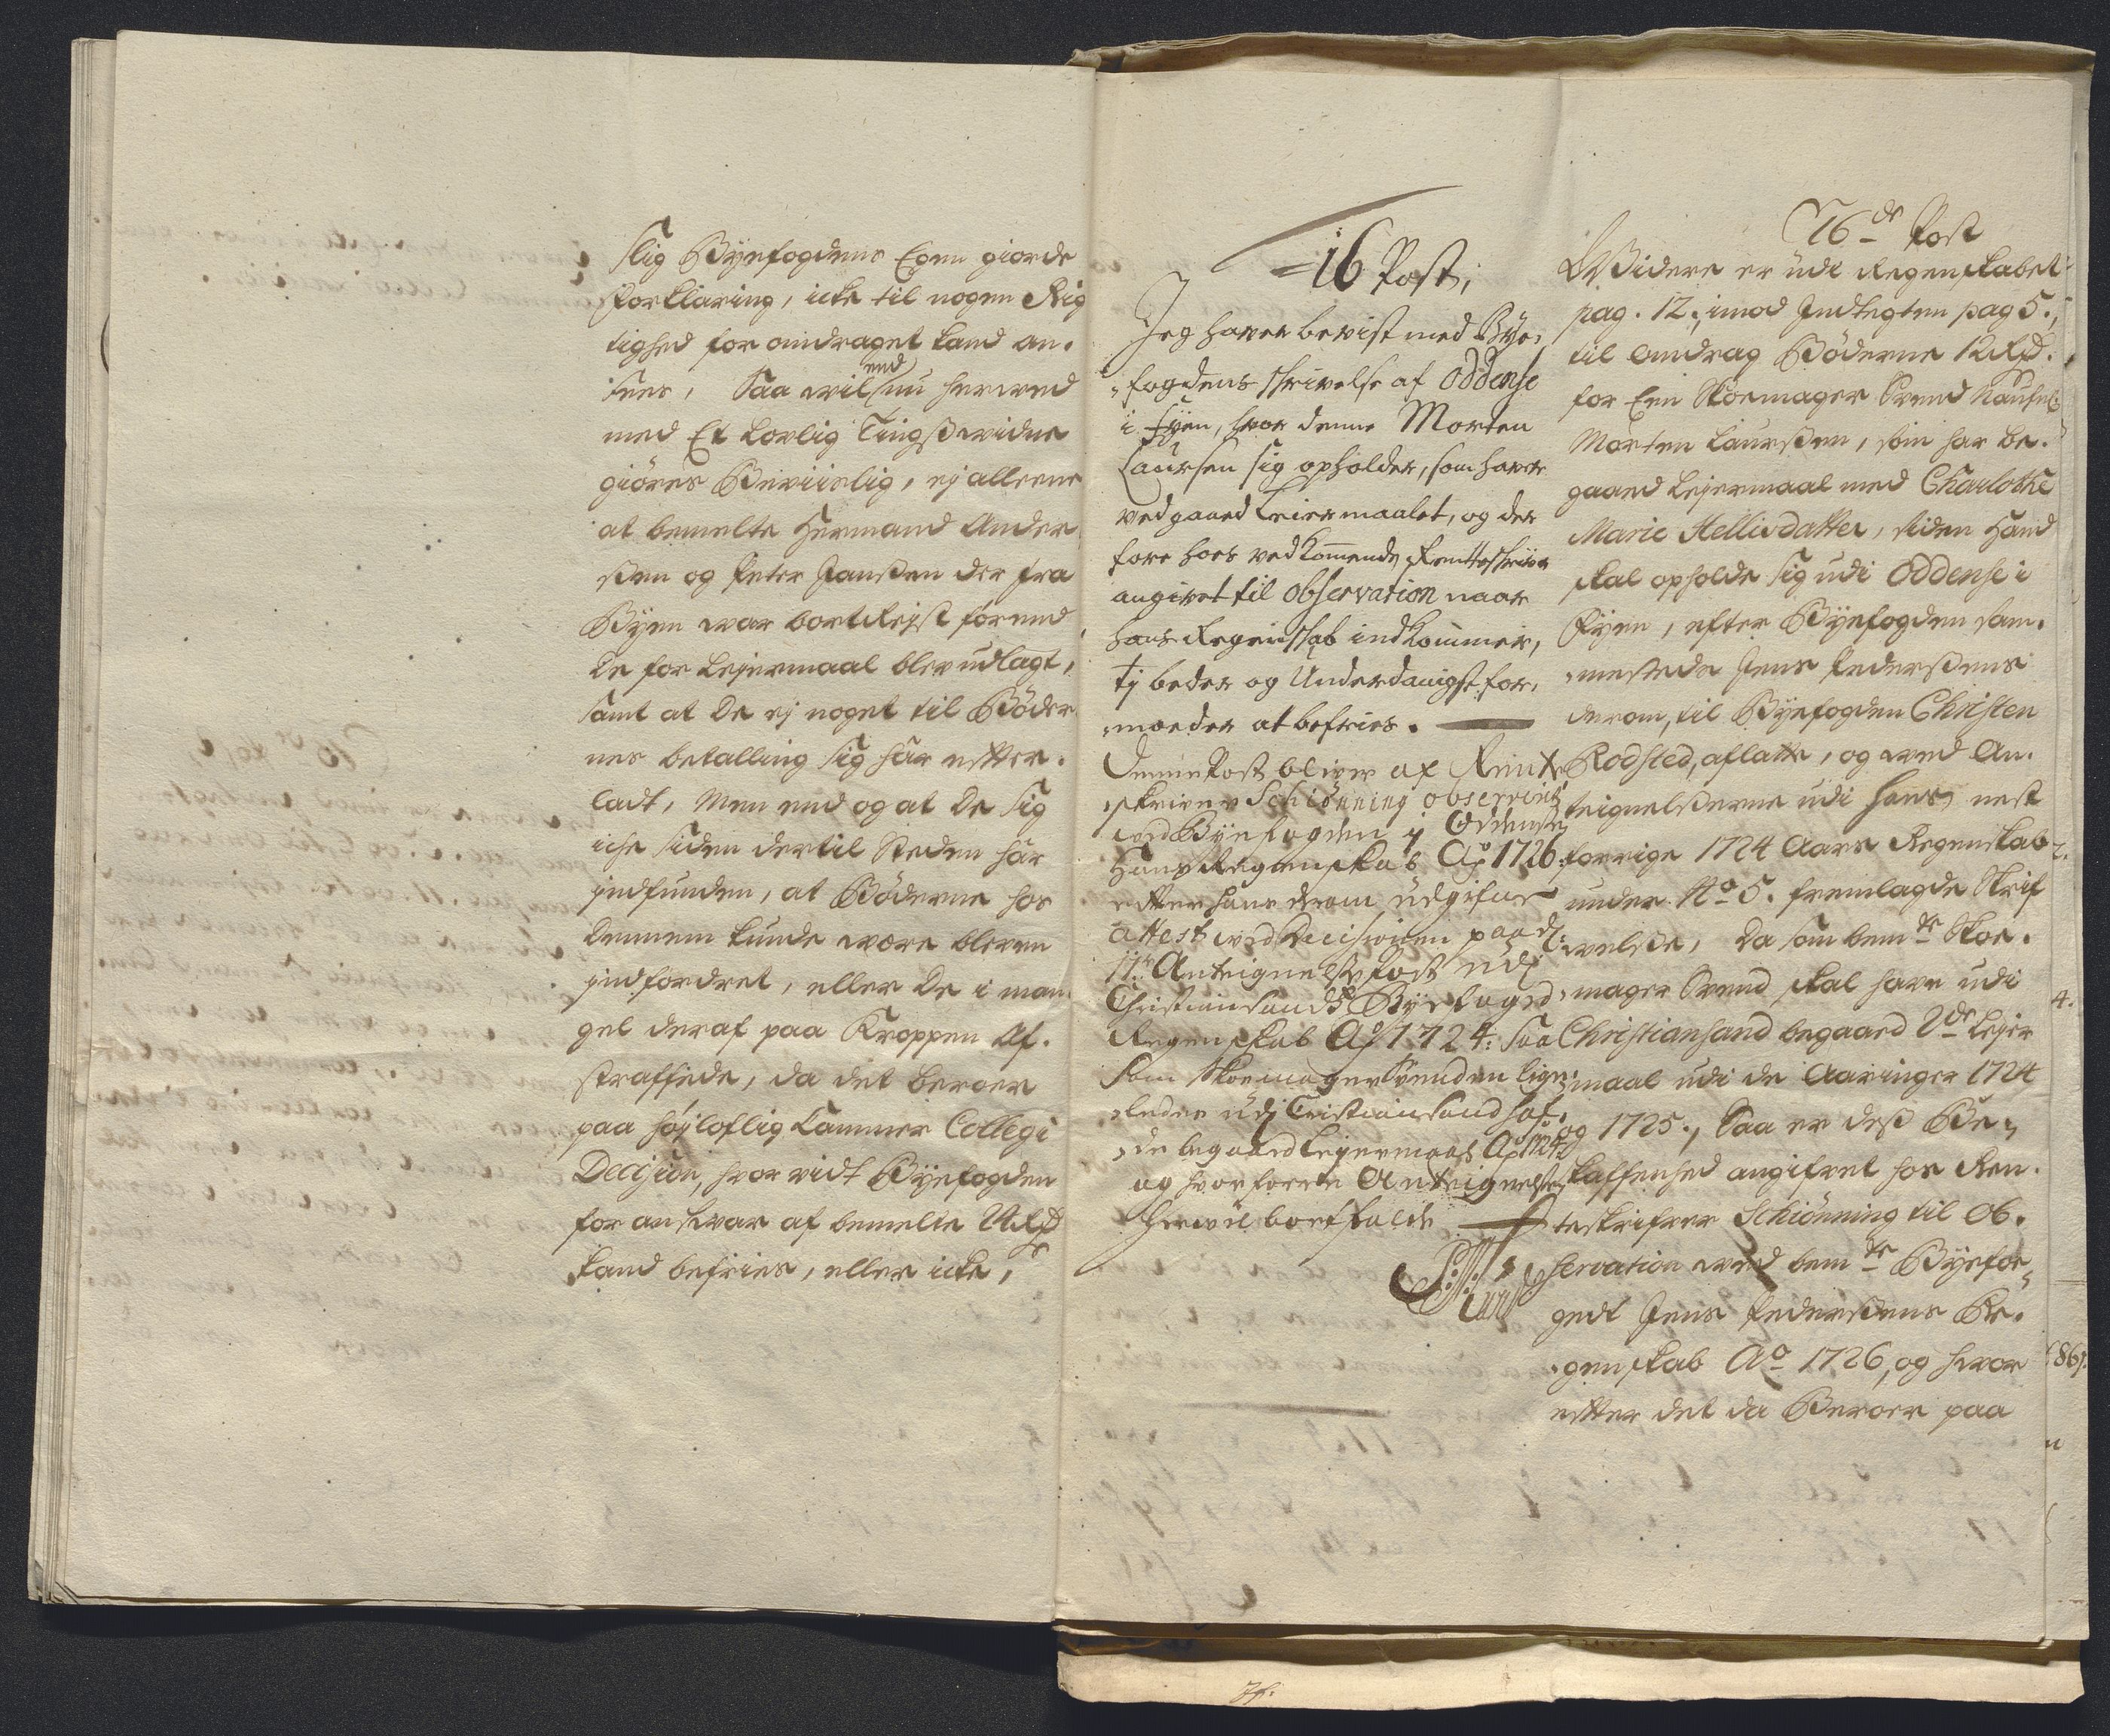 slig Býefogdens Egen giorde
forklaring, icke til nogen Rig
tighed for omdraget kand an-
sees, Saa vil end nu herved
med Et Lovlig Tingßwidne
giøres Beviislig, ej alleene
at bemelte Hermand Ander
ßen og Peter Janßen der fra
Býen war bortRejst førend
De for Lejermaal blev udlagt,
samt at De ej noget til Bøder
nes betalling sig har efter-
ladt, Men end og at De sig
iche siden dertil Steden har
indfunden, at Bøderne hos
dennem kunde være bleven
indfordret, eller De i man-
gel deraf paa Kroppen af-
straffede, da det beroer
paa høýloflig Cammer Collegi
Decision, hvor vidt Býefogden
for ansvar af bemelte 24 Rdr
kand befries, eller icke,
16 Post,
Jeg haver bevist med Býe-
fogdens skrivelse af Oddense
i Fýen, hvor denne Morten
Laursen sig opholder, som haver
vedgaaed Leiermaalet, og der
fore hoes vedkommende Rentteskriver
angivet til observation naar
hans Regenskab indkommer,
tj beder og Underdanigst for-
moeder at befries.
Denne Post bliver af Rente
skriver Schiønning observerit
ved Býefogden i Oddense
Hans Regenskab Ao 1726
efter hans derom udgifne
attest ved Decisionen paa d:
11te Antegnelses Post udj
Christiansands Býefogeds
Regenskab Ao 1724: saa
som Skoemager Svenden lige-
ledes udj Cristiansand haf-
de begaaed Lejermaal Ao 1724
og hvorforre Antegnelsen
herved bortfalder
16de Post
Widere er udi Regenskabet
pag. 12. imod Indtegten pag 5.,
til omdrag Bøderne 12 Rdr.
for Een Skoemager Svend Naufnl:
Morten Laurßen, som har be-
gaaed Lejermaal med Charlothe
Marie Hellisdatter, siden Hand
skal opholde sig udi Oddense i
Fýen, efter Býefogden sam-
mestede Jens Pederßens
derom, til Býefogden Christen
Rodsted, aflatte, og ved An-
tegnelßerne udi hans nest
forrige 1724 Aars Regenskab
under No 5. fremlagde Skrif
velße, da som bemte Skoe-
mager Svend skal have udi
Christiansand begaaed 2de Lejer
maal udi de Aaringer 1724
og 1725., Saa er deß Be-
skaffenhed angifvet hos Ren-
teskrifver Schiønning til Ob-
servation ved bemte Býefoe-
gedt Jens Pederßens Re-
genskab Ao 1726, og hvor
efter det da Beroer paa
2.
4.
86